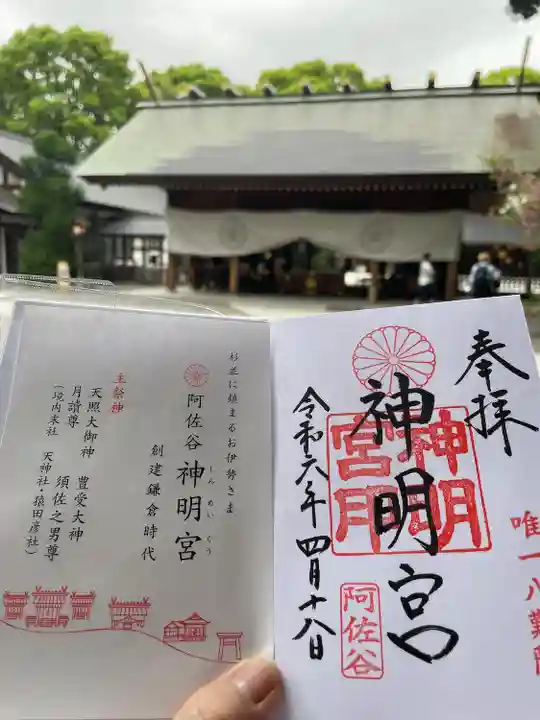 奉拝
唯一八難
神明宮
神明宮
阿佐谷
令和六年四月十八日
杉並に鎮まるお伊勢さま
阿佐谷
神明宮
しんめいぐう
創建鎌倉時代
主祭神
天照大御神
豊受大神
月讀尊
須佐之男尊
（境内末社 天神社・猿田彦社）